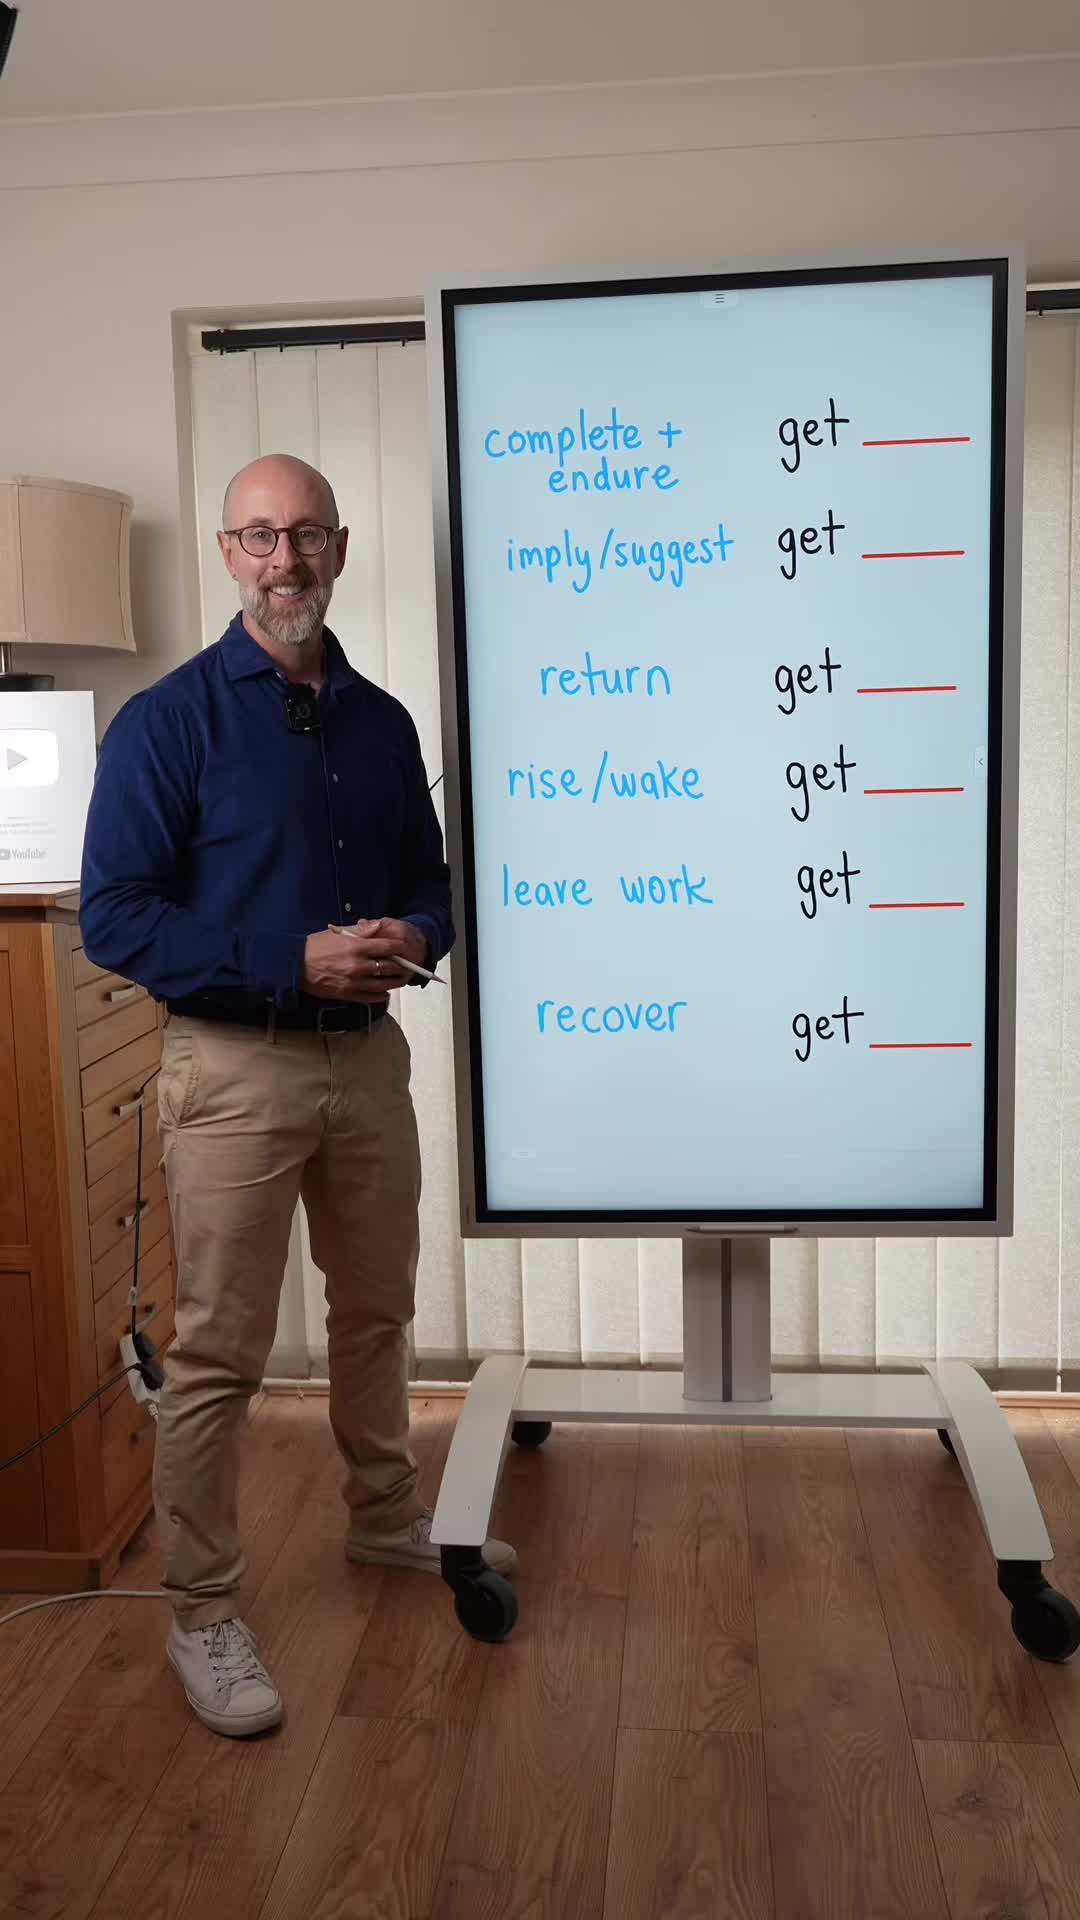 complete + get ____
endure
imply/suggest get ____
return get ____
rise/wake get ____
leave work get ____
recover get ____
YouTube